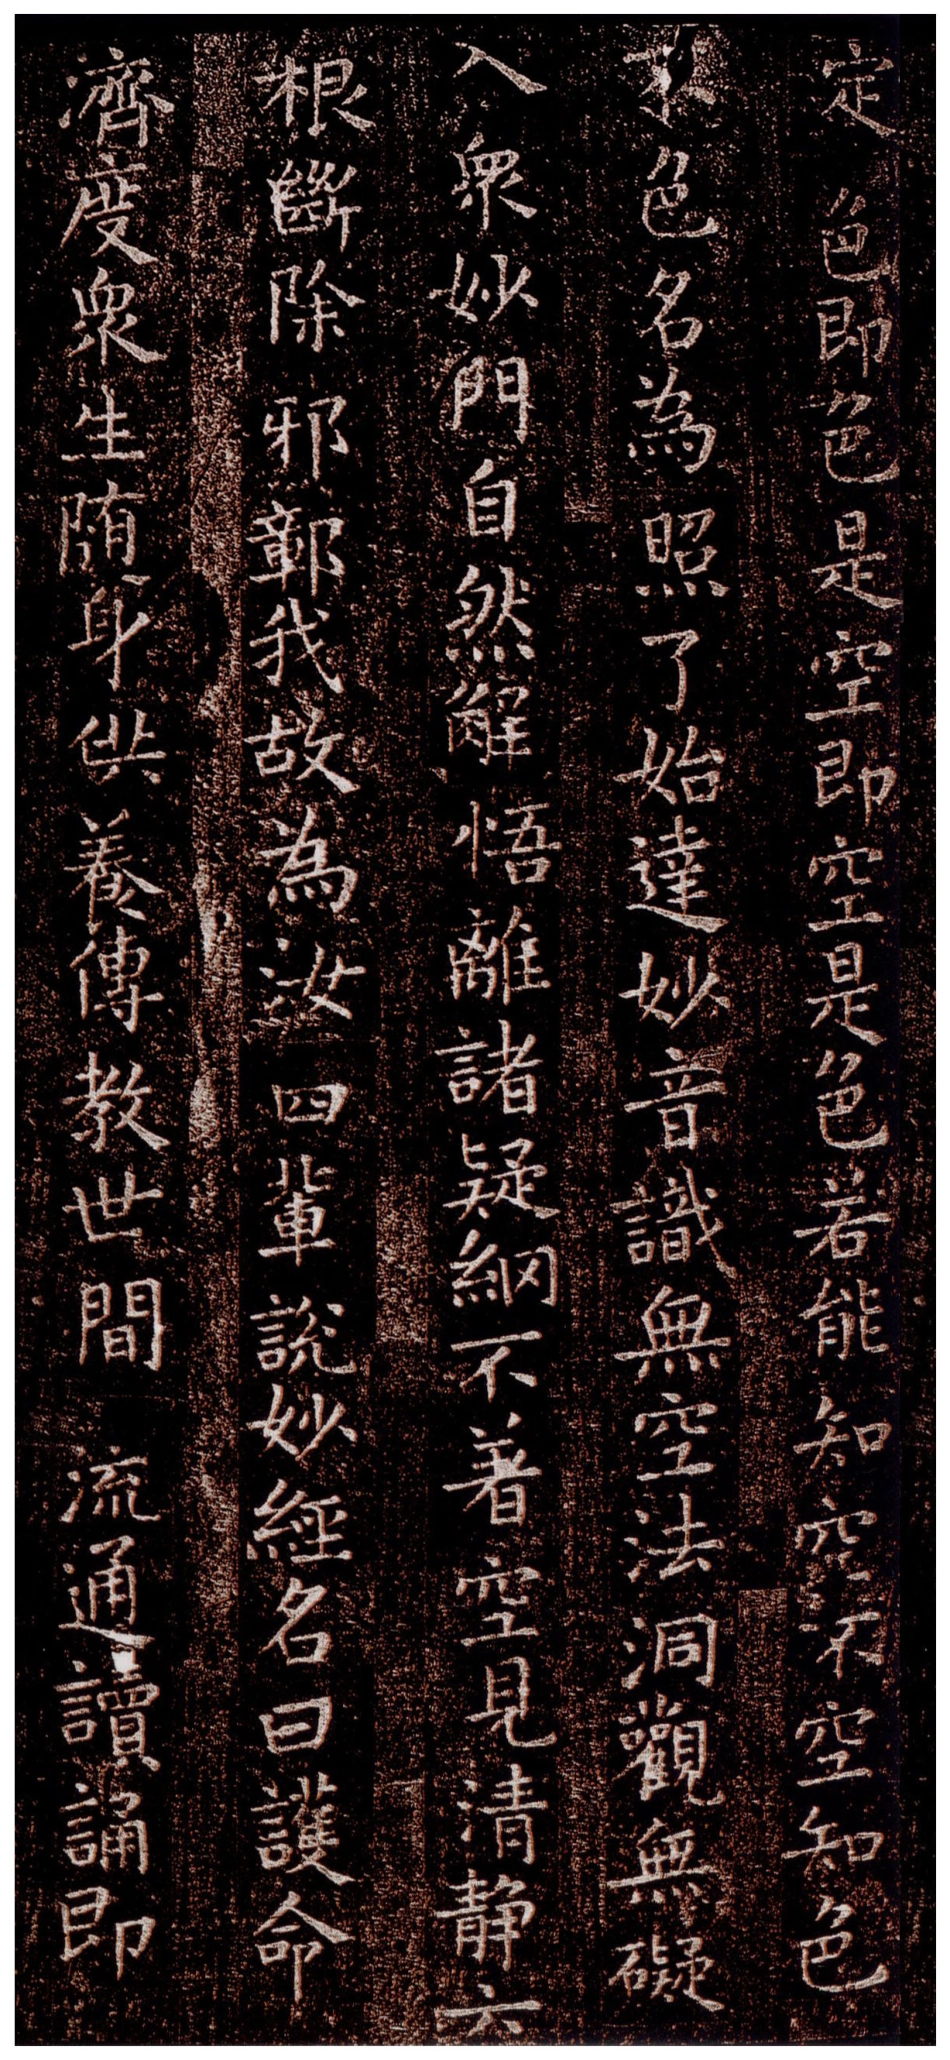 定色即色是空即空是色若能知空不空知色
不色名為照了始達妙音識無空法洞觀無礙
入衆妙門自然解悟離諸疑網不著空見清静六
根斷除邪鄣我故為汝四輩說妙經名曰護命
濟度衆生随身供養傳教世間流通讀誦即